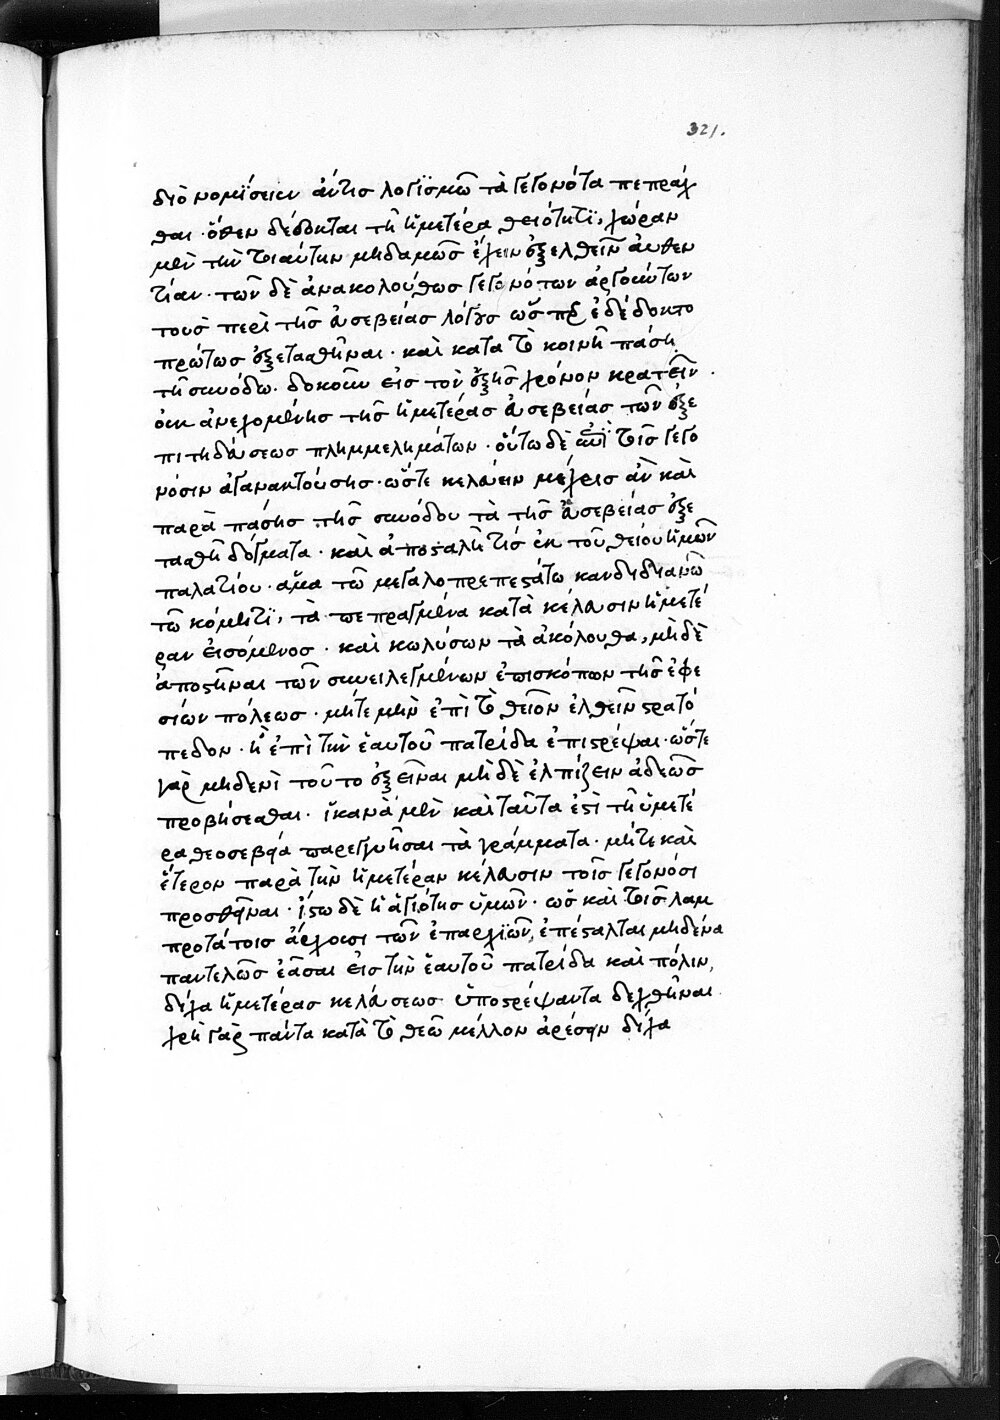 321.
διὸ νομίσειεν ἄν τις λογϊσμῶ τὰ γεγονότα πεπράχ
θαι· ὅθεν δέδοκται τῆ ἡμετέρα θειότητϊ, χώραν
μὲν τὴν τοιαύτην μηδαμῶς ἔχειν ἐξελθεῖν αὐθεν
τίαν· τῶν δὲ ἀνακολούθως γεγονότων ἀργούντων
τοὺς περὶ τῆς εὐσεβείας λόγους ὥσπερ ἐδέδοκτο
πρώτως ἐξετασθῆναι· καὶ κατα τὸ κοινῆ πάση
τῆ συνόδω δοκοῦν εἰς τὸν ἑξῆς χρόνον κρατεῖν·
οὐκ ἀνεχομένης τῆς ἡμετέρας εὐσεβείας τῶν ἐξε
πιτηδεύσεως πλημμελημάτων· οὕτω δὲ ἐπὶ τοῖς γεγο
νόσιν ἀγανακτούσης· ὥστε κελεύειν μέχρις ἂν καὶ
παρὰ πάσης τῆς συνόδου τὰ τῆς εὐσεβείας ἐξε
τασθῆ δόγματα· καὶ ἀποσταλῆ τίς ἐκ τοῦ θείου ἡμῶν
παλατίου· ἅμα τῶ μεγαλοπρεπεστάτω κανδιδιανῶ
τῶ κόμητϊ, τὰ πεπραγμένα κατὰ κέλευσιν ἡμετέ
ραν εἰσόμενος· καὶ κωλύσων τὰ ἀκόλουθα, μὴ δὲ
ἀποστῆναι τῶν συνειλεγμένων ἐπισκόπων τῆς ἐφε
σίων πόλεως· μήτε μὴν ἐπὶ τὸ θεῖον ἐλθεῖν στρατό
πεδον· ἢ ἐπὶ τὴν ἑαυτοῦ πατρίδα ἐπιστρέψαι· ὥστε
γὰρ μηδενὶ τοῦτο ἐξεῖναι μὴ δὲ ἐλπίζειν ἀδεῶς
προβήσεσθαι· ἱκανὰ μὲν καὶ ταῦτα ἐστὶ τῆ ὑμετέ
ρα θεοσεβεία παρεγγυῆσαι τὰ γράμματα· μήτε καὶ
ἕτερον παρὰ τὴν ἡμετέραν κέλευσιν τοῖς γεγονόσι
προσθεῖναι· ἴστω δὲ ἡ ἁγιότης ὑμῶν· ὡς καὶ τοῖς λαμ
προτάτοις ἄρχουσι τῶν ἐπαρχιῶν, ἐπέσταλται μηδένα
παντελῶς ἐᾶσαι εἰς τὴν ἑαυτοῦ πατρίδα καὶ πόλιν,
δίχα ἡμετέρας κελεύσεως ὑποστρέψαντα δεχθῆναι·
χρὴ γὰρ πάντα κατὰ τὸ θεῶ μέλλον ἀρέσειν δίχα